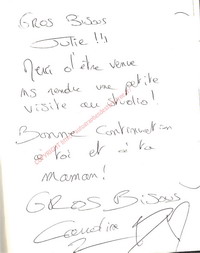 GROS BISOUS
Julie !!!
Merci d'être venue
ns rendre une petite
visite au studio !
Bonne continuation
à toi et à ta
maman !
GROS BISOUS